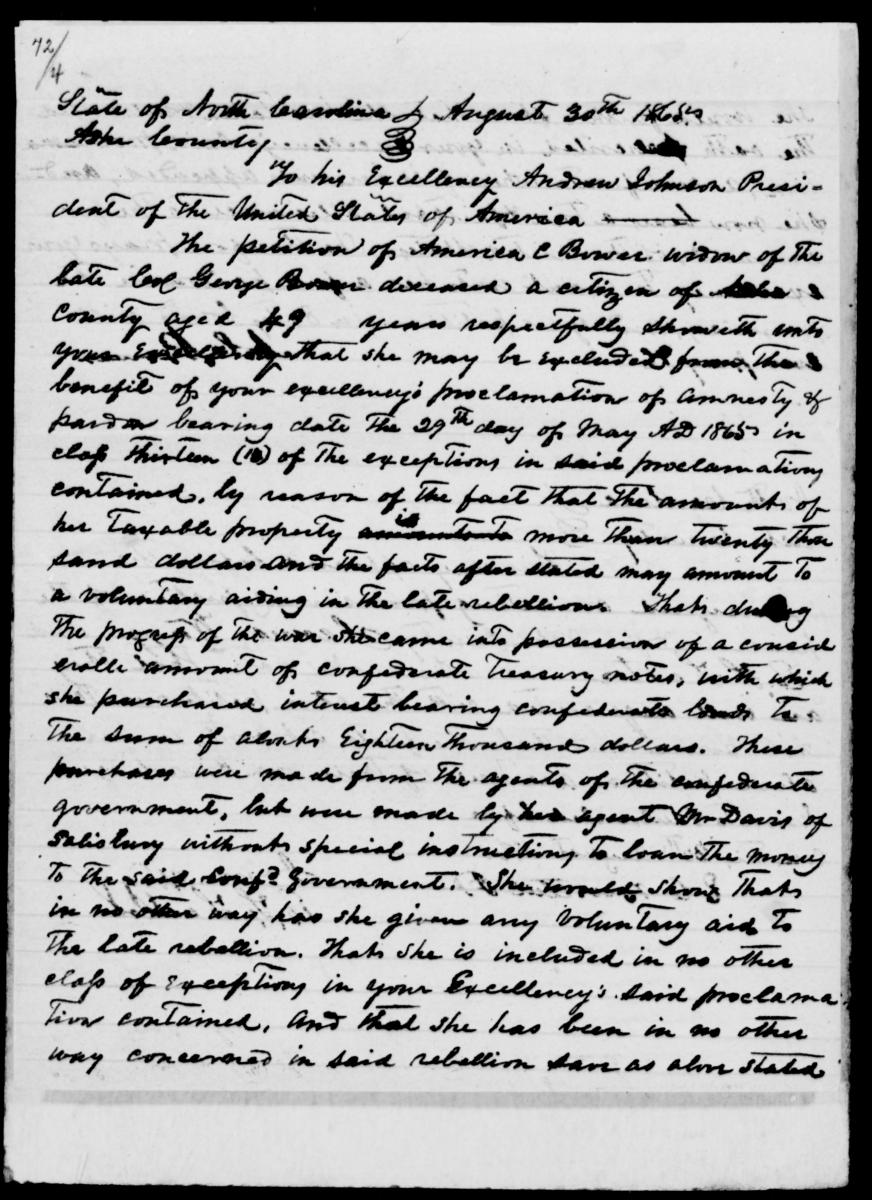 72/4
State of North Carolina } August 30th 1865
Ashe County
To his Excellency Andrew Johnson Presi-
dent of the United States of America
The petition of America C Bower widow of the
late Col. George Bower deceased a citizen of Ashe
County aged 49 years respectfully sheweth unto
your Excellency that she may be excluded from the
benefit of your excellency's proclamation of amnesty &
pardon bearing date the 29th day of May AD 1865 in
class thirteen (13) of the exceptions in said proclamation
contained, by reason of the fact that the amount of
her taxable property amounts to is more than twenty thou
sand dollars and the facts after stated may amount to
a voluntary aiding in the late rebellion. That during
the progress of the war she came into possession of a consid
erable amount of confederate treasury notes, with which
she purchased interest bearing confederate bonds to
the sum of about Eighteen thousand dollars. These
purchases were made from the agents of the confederate
government, but were made by her agent Mr Davis of
Salisbury without special instructions to loan the money
to the said Confd. Government. She would show that
in no other way has she given any voluntary aid to
the late rebellion. That she is included in no other
class of exceptions in your Excellency's said proclama
tion contained, and that she has been in no other
way concerned in said rebellion save as above stated